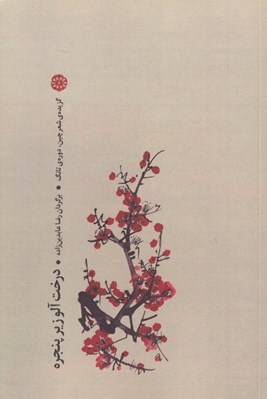 گزیده‌ی شعر چین، دوره‌ی تانگ • برگردان رضا عابدین‌زاده • درخت آلو زیر پنجره